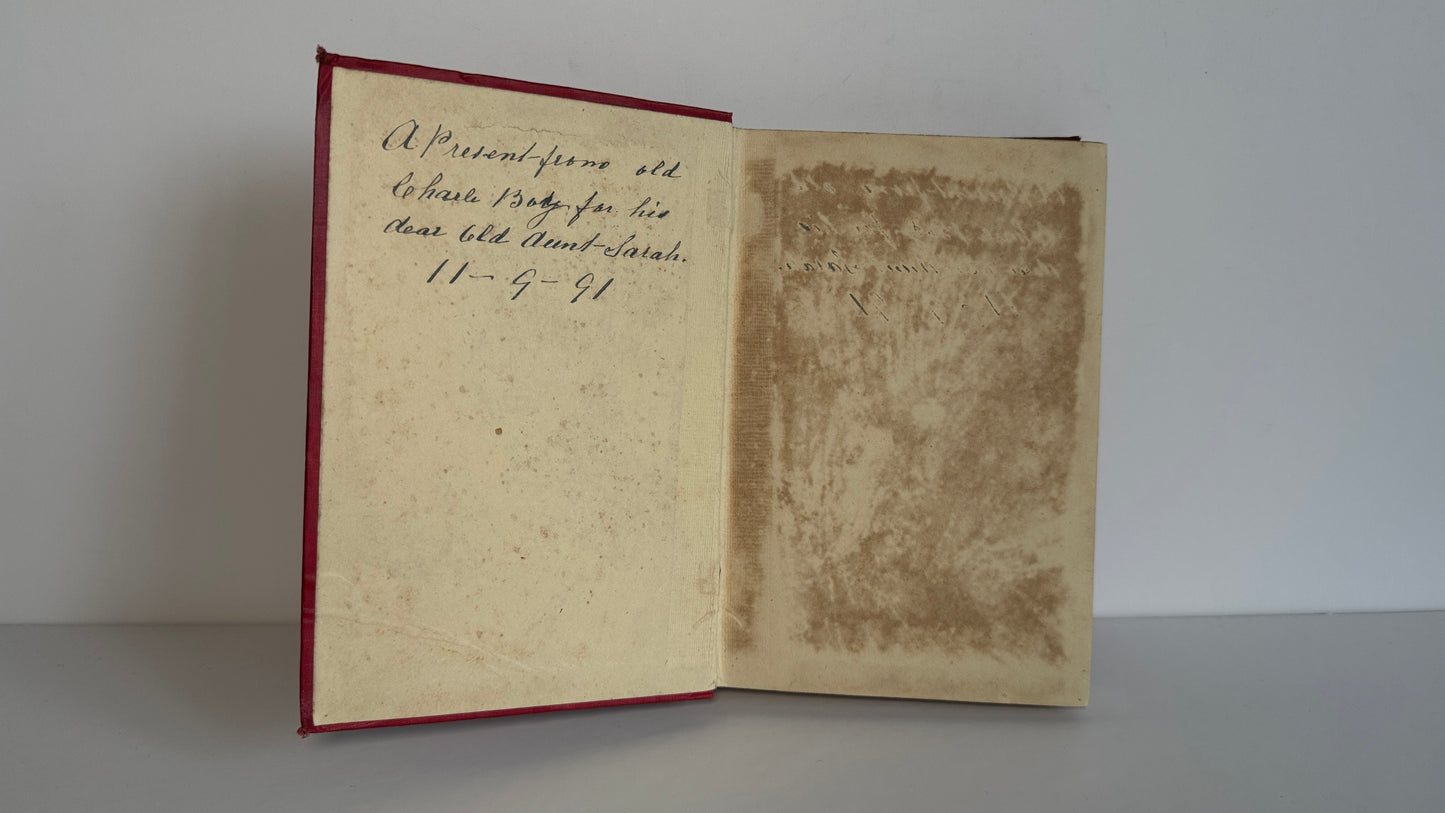 A Present from old
Charle Boty for his
dear Old Aunt Sarah.
11 – 9 – 91